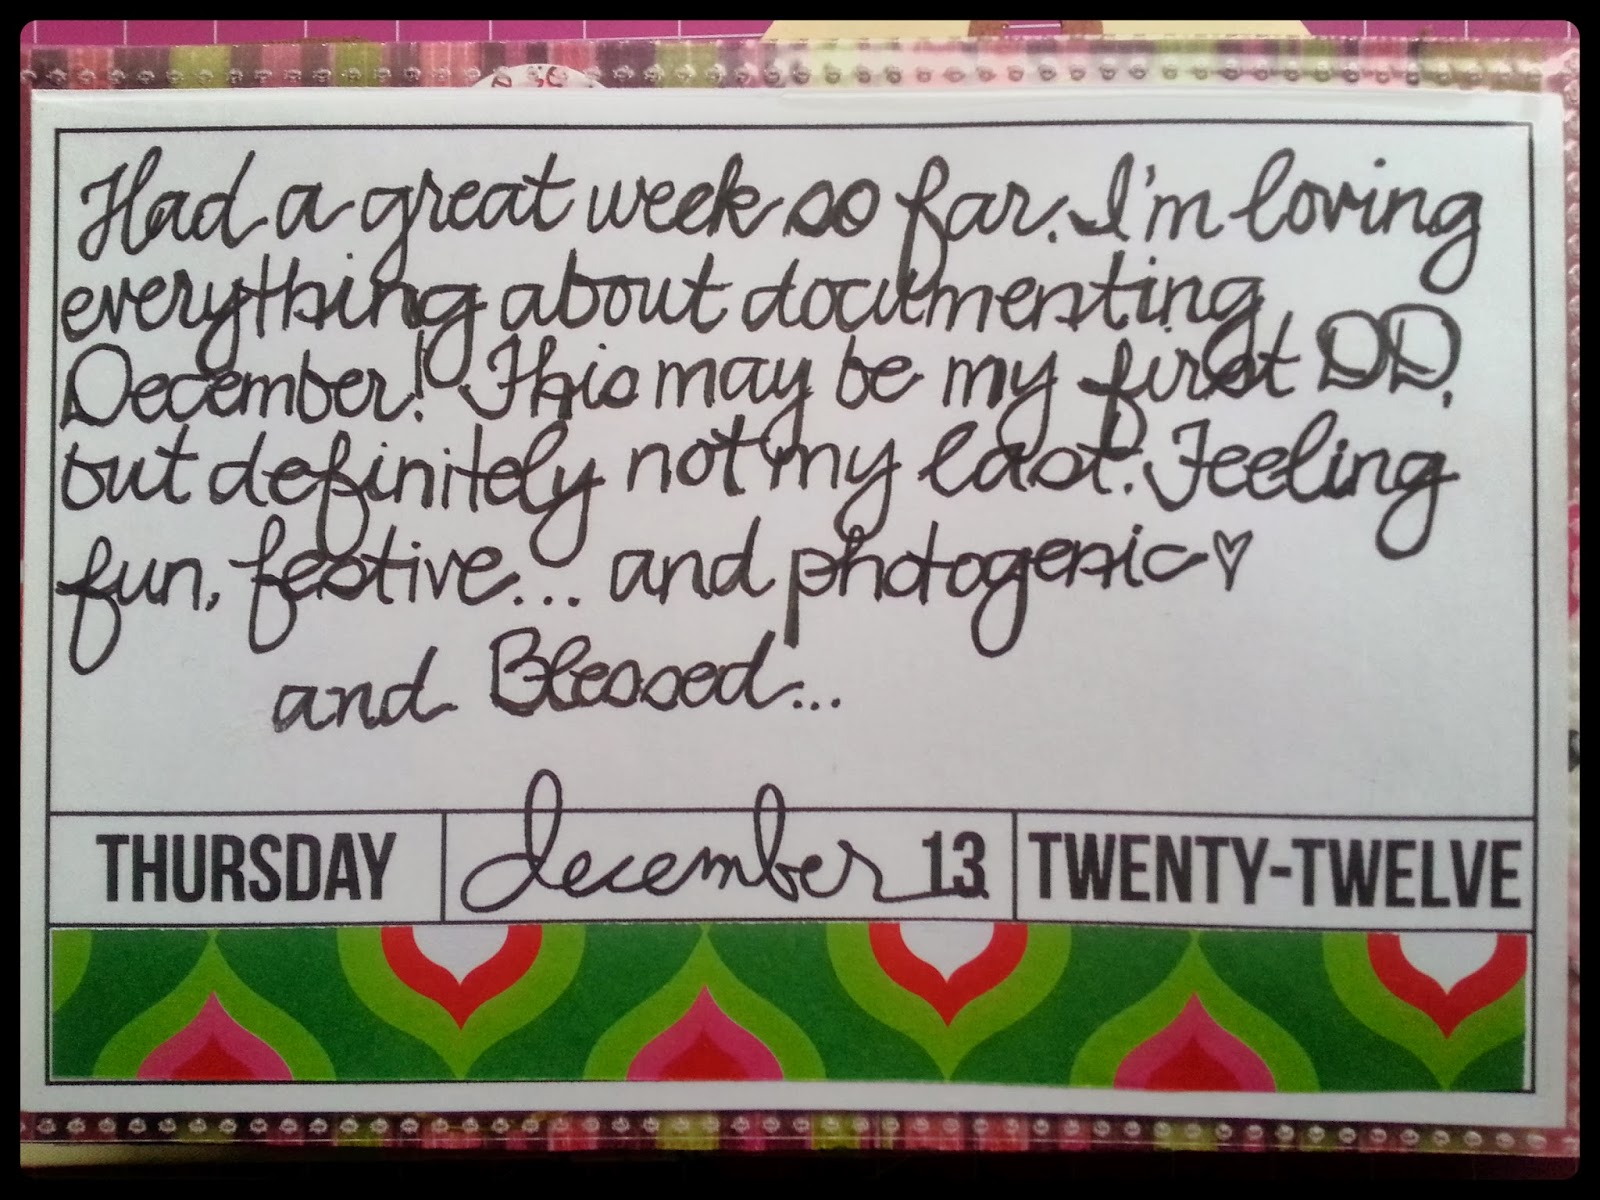 Had a great week so far. I'm loving
everything about documenting
December! This may be my first DD,
but definitely not my last. Feeling
fun, festive... and photogenic♡
and Blessed...
THURSDAY december 13 TWENTY-TWELVE